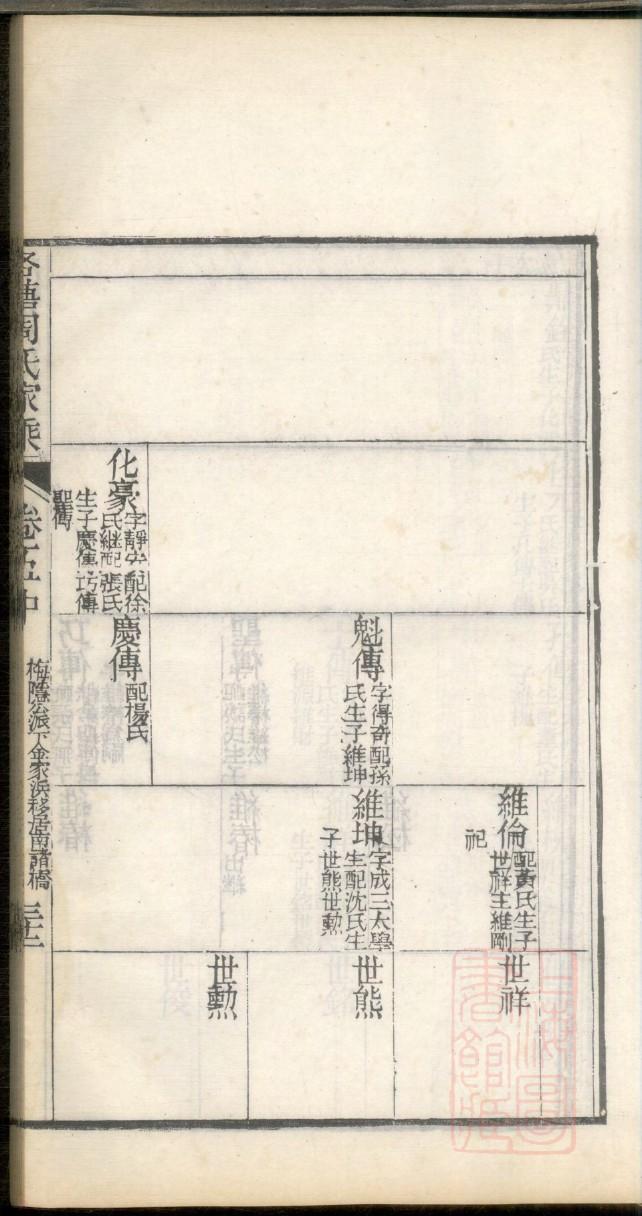 維倫
配黃氏生子
世祥主維剛
祀
世祥
魁傳
字得奇配孫
氏生子維坤
維坤
字成三太學
生配沈氏生
子世熊世勲
世熊
世勲
化豪
字靜安配徐
氏継配張氏
生子慶傳巧傳
聖傳
慶傳
配楊氏
周氏家乘
卷五中
梅隱公派下金家浜移居南諸橋
三十二